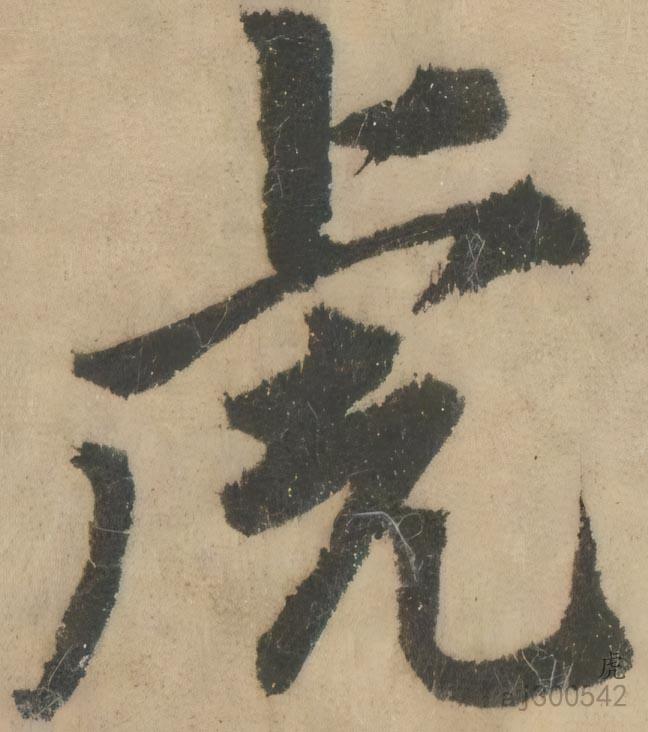 虎
虎
ajg00542